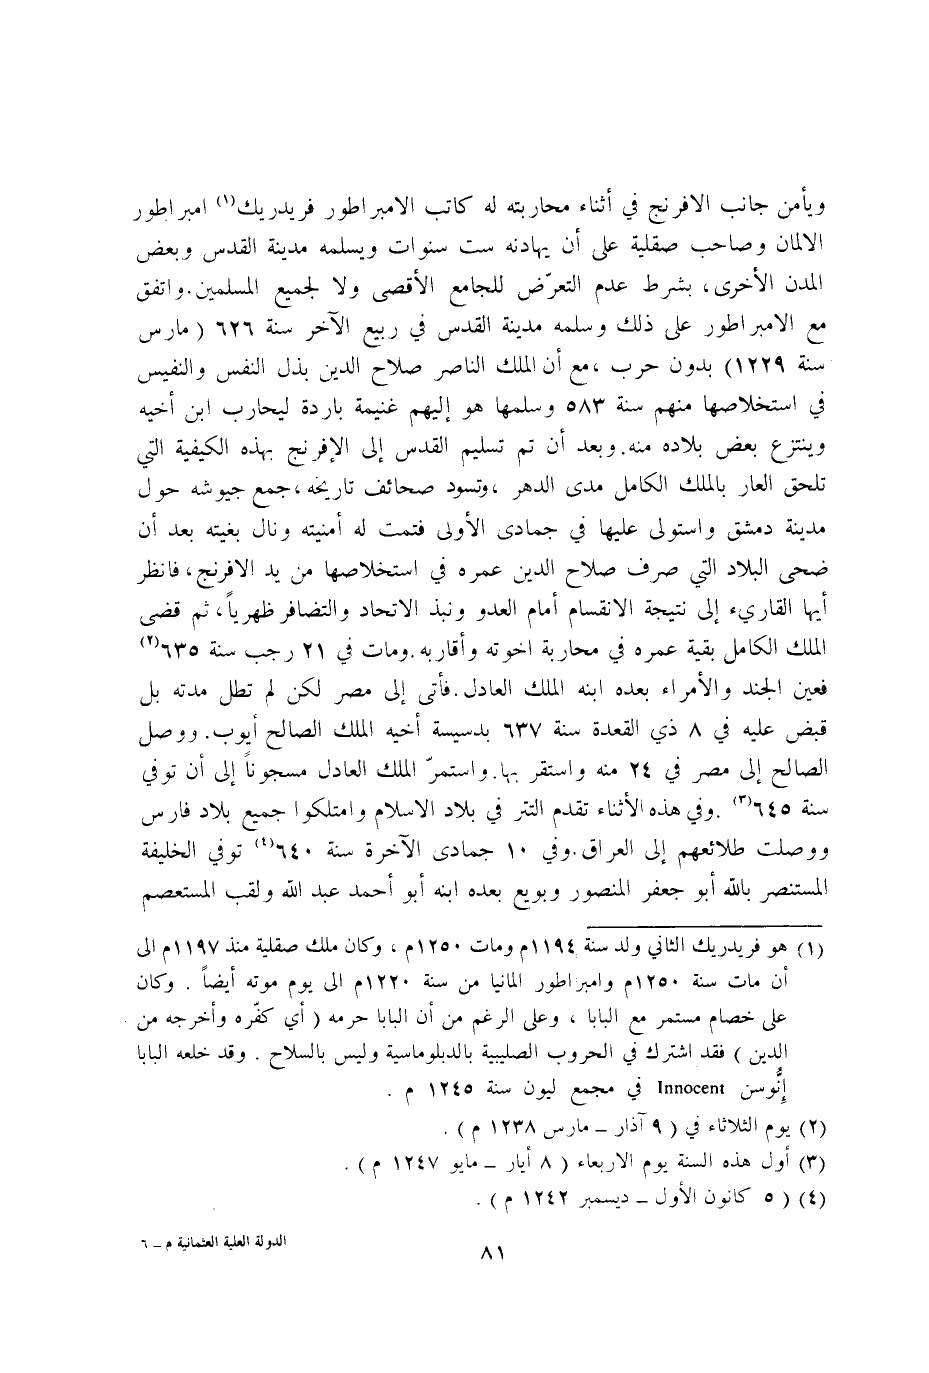 ويأمن جانب الافرنج في أثناء محاربته له كاتب الامبراطور فريدريك(١) امبراطور
الالمان وصاحب صقلية على أن يهادنه ست سنوات ويسلمه مدينة القدس وبعض
المدن الأخرى، بشرط عدم التعرّض للجامع الأقصى ولا لجميع المسلمين.واتفق
مع الامبراطور على ذلك وسلمه مدينة القدس في ربيع الآخر سنة ٦٢٦ ( مارس
سنة ١٢٢٩) بدون حرب ،مع أن الملك الناصر صلاح الدين بذل النفس والنفيس
في استخلاصها منهم سنة ٥٨٣ وسلمها هو إليهم غنيمة باردة ليحارب ابن أخيه
وينتزع بعض بلاده منه.وبعد أن تم تسليم القدس إلى الإفرنج بهذه الكيفية التي
تلحق العار بالملك الكامل مدى الدهر ،وتسود صحائف تاريخه،جمع جيوشه حول
مدينة دمشق واستولى عليها في جمادى الأولى فتمت له أمنيته ونال بغيته بعد أن
ضحى البلاد التي صرف صلاح الدين عمره في استخلاصها من يد الافرنج،فانظر
أيها القاريء إلى نتيجة الانقسام أمام العدو ونبذ الاتحاد والتضافر ظهرياً،ثم قضى
الملك الكامل بقية عمره في محاربة اخوته وأقاربه.ومات في ٢١ رجب سنة ٦٣٥(٢)
فعين الجند والأمراء بعده ابنه الملك العادل.فأتى إلى مصر لكن لم تطل مدته بل
قبض عليه في ٨ ذي القعدة سنة ٦٣٧ بدسيسة أخيه الملك الصالح أيوب. ووصل
الصالح إلى مصر في ٢٤ منه واستقر بها.واستمرّ الملك العادل مسجوناً إلى أن توفي
سنة ٦٤٥(٣) .وفي هذه الأثناء تقدم التتر في بلاد الاسلام وامتلكوا جميع بلاد فارس
ووصلت طلائعهم إلى العراق.وفي ١٠ جمادى الآخرة سنة ٦٤٠(٤) توفي الخليفة
المستنصر بالله أبو جعفر المنصور وبويع بعده ابنه أبو أحمد عبد الله ولقب المستعصم
(١) هو فريدريك الثاني ولد سنة ١١٩٤م ومات ١٢٥٠م ، وكان ملك صقلية منذ ١١٩٧م الى
أن مات سنة ١٢٥٠م وامبراطور المانيا من سنة ١٢٢٠م الى يوم موته أيضاً . وكان
على خصام مستمر مع البابا ، وعلى الرغم من أن البابا حرمه ( أي كفّره وأخرجه من
الدين ) فقد اشترك في الحروب الصليبية بالدبلوماسية وليس بالسلاح . وقد خلعه البابا
إنُّوسن Innocent في مجمع ليون سنة ١٢٤٥ م .
(٢) يوم الثلاثاء في ( ٩ آذار ـ مارس ١٢٣٨ م ) .
(٣) أول هذه السنة يوم الاربعاء ( ٨ أيار ـ مايو ١٢٤٧ م ) .
(٤) ( ٥ كانون الأول ـ ديسمبر ١٢٤٢ م ) .
الدولة العلية العثمانية م ـ ٦
٨١